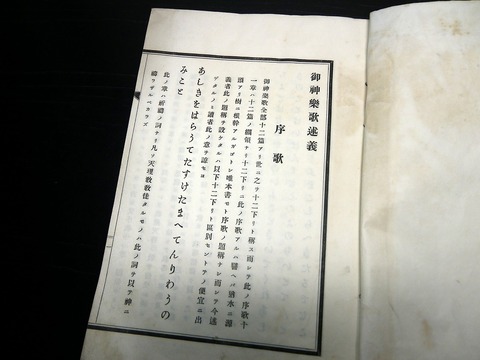 御神樂歌述義
序歌
御神樂歌全部十二篇アリ世ニ之ヲ十二下リト稱ス而シテ此ノ序歌十
一章ハ十二篇ノ綱領ナリ十二下リニ此ノ序歌アルハ譬ヘバ猶水ニ源
頭アリ樹ニ根幹アルガゴトシ唯本書モト序歌ノ題稱ナシ而シテ今述
義者此ノ題稱ヲ設ケタルハ以下十二下リト區別セントアノ便宜ニ出
デタルノミ讀者此ノ意ヲ諒セヨ
あしきをはらうてたすけたまへてんりわうの
みこと
此ノ章ハ祈禱ノ詞ナリ凡ソ天理教教徒タルモノハ此ノ詞ヲ以テ神ニ
禱ラザルベカラズ